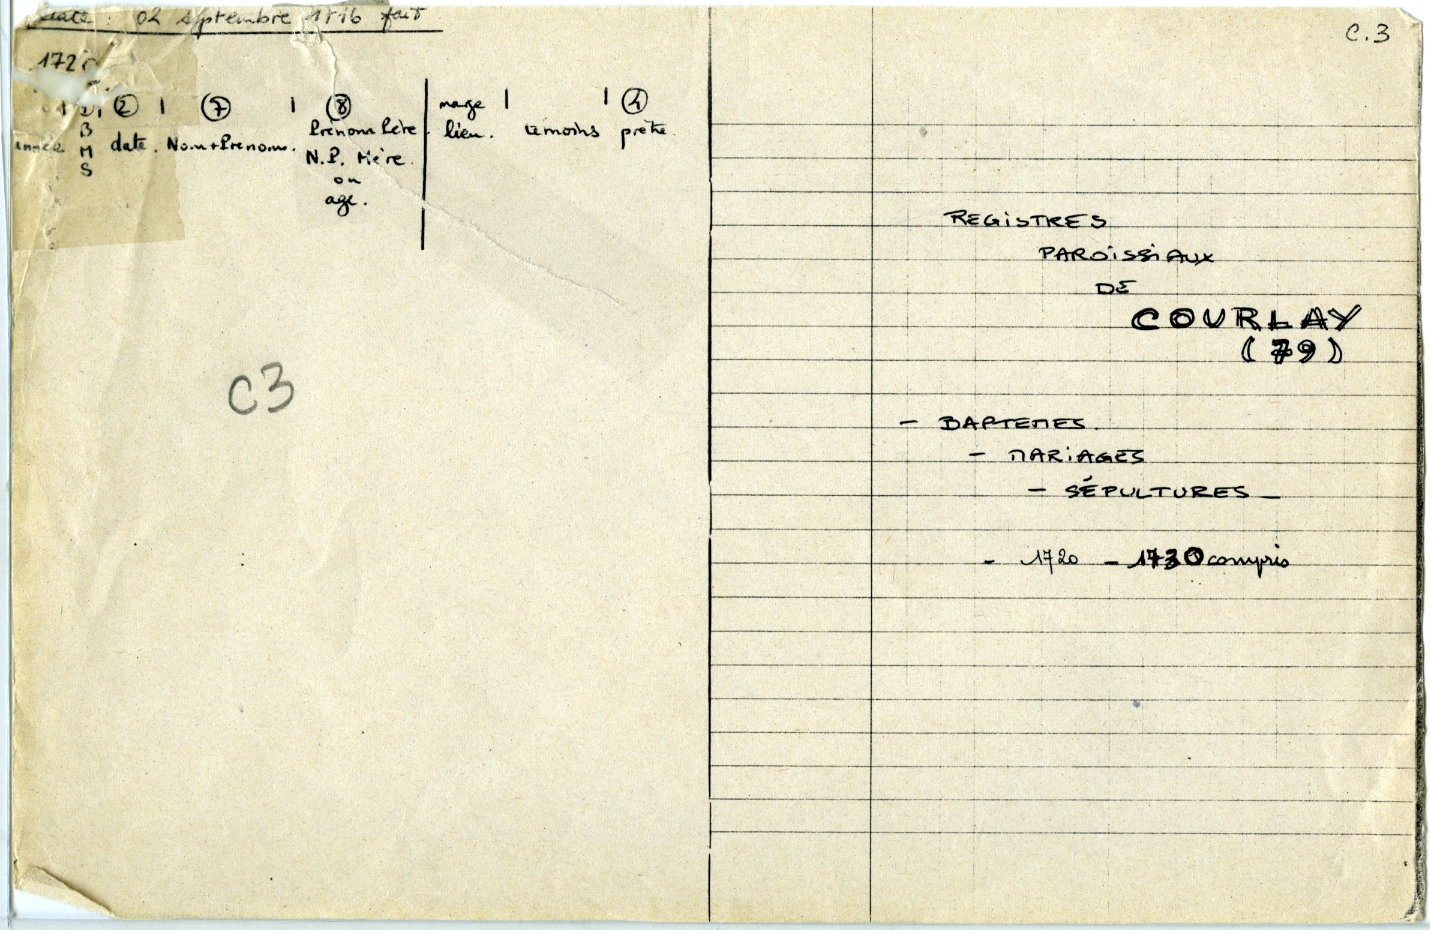 date : 02 septembre fait
172
② ⑦ ⑧ ④
année B M S date. Nom+Prenoms. Prénom Père marge lieu. témoins prêtre.
N.P. Mère.
ou
age.
C3
C.3
REGiSTRES
PAROiSSiAUX
DE
COURLAY
(79)
- BAPTEMES.
- MARiAGES
- SÉPULTURES _
- 1720 - 1730 compris